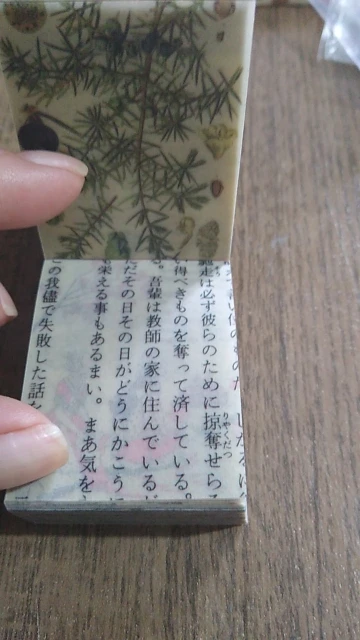 しかるに
馳走は必ず彼らのために掠奪せら
りゃくだつ
い得べきものを奪って済している。
。吾輩は教師の家に住んでいる
だその日その日がどうにかこうに
も栄える事もあるまい。まあ気を
この我儘で失敗した話を